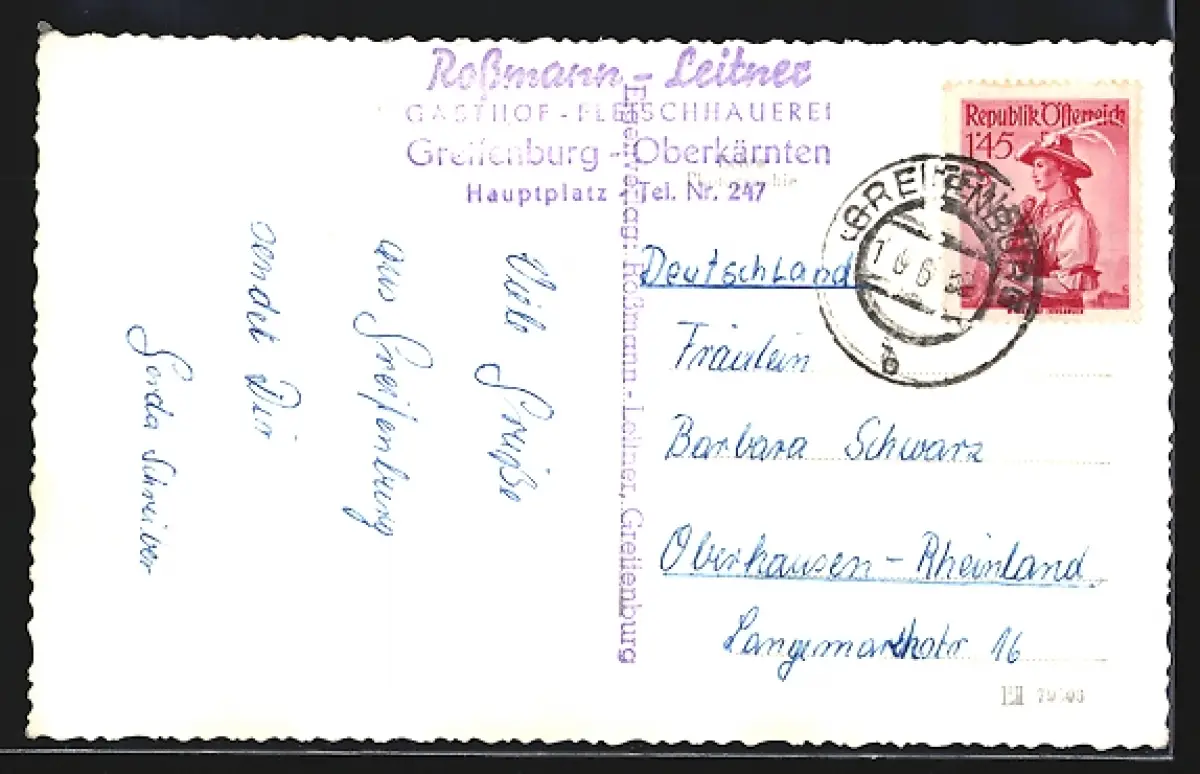 Roßmann - Leitner
GASTHOF - FLEISCHHAUEREI
Greifenburg - Oberkärnten
Hauptplatz - Tel. Nr. 247
Eigenverlag: Roßmann-Leitner, Greifenburg
Republik Österreich
1'45
GREIFENBURG
b
Viele Grüße
aus Greifenburg
sendet Dir
Gerda Schreiber
Deutschland
Fräulein
Barbara Schwarz
Oberhausen - Rheinland
Langemarkstr 16